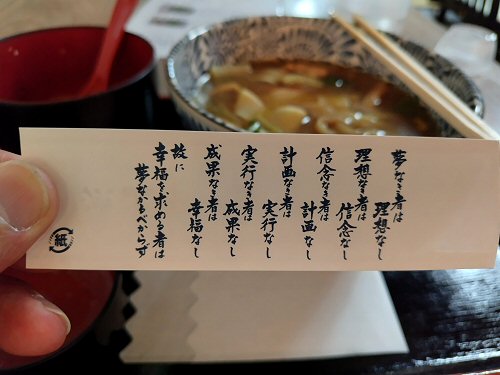 夢なき者は
理想なし
理想なき者は
信念なし
信念なき者は
計画なし
計画なき者は
実行なし
実行なき者は
成果なし
成果なき者は
幸福なし
故に
幸福を求める者は
夢なかるべからず
紙